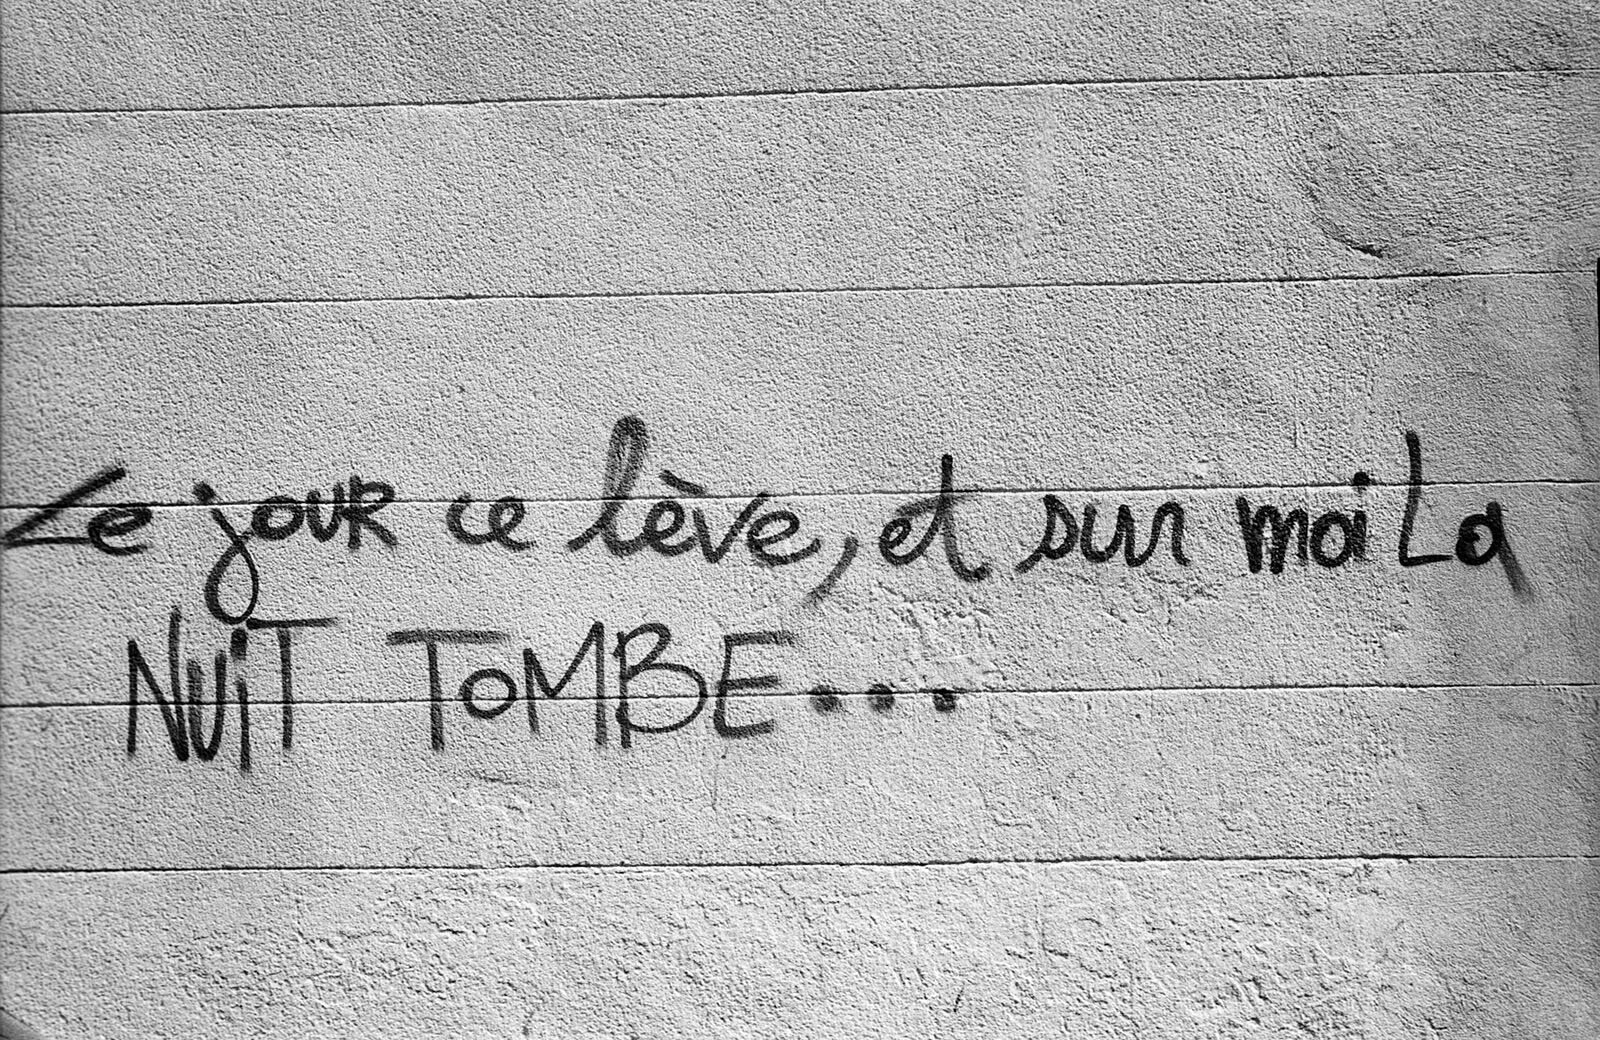 Le jouR ce lève, et sur moi La
NUiT ToMBE...